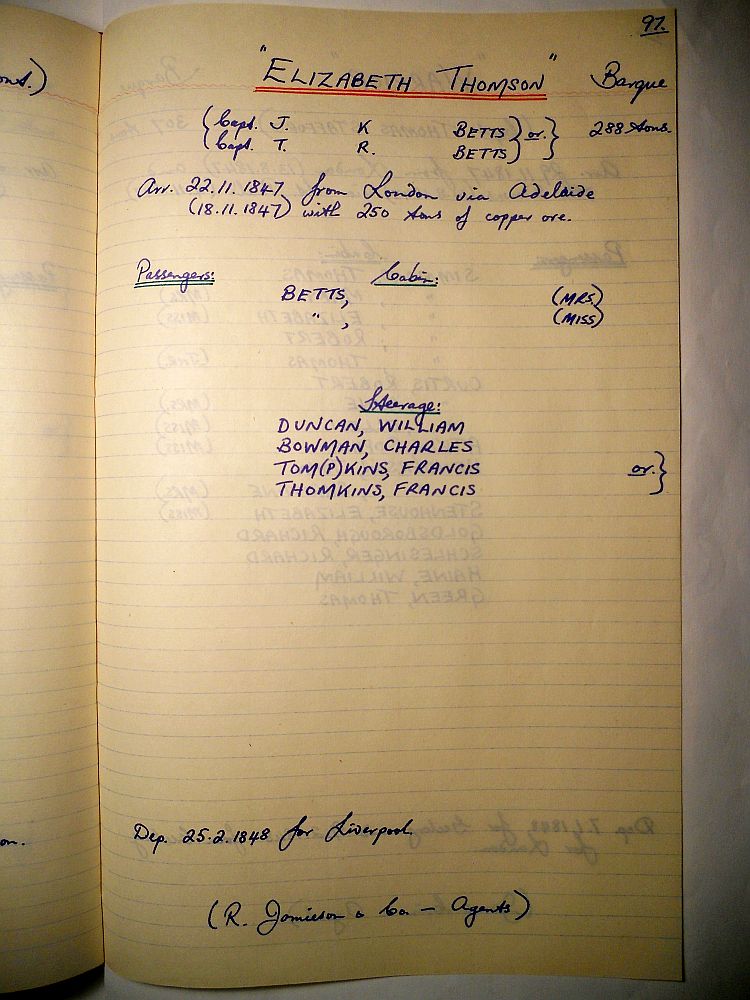 97.
"ELIZABETH THOMSON" Barque
{Capt. J. K BETTS} or. } 288 tons.
{Capt. T. R. BETTS}
Arr. 22.11.1847 from London via Adelaide
(18.11.1847) with 250 tons of copper ore.
Passengers: Cabin:
BETTS, (MRS.)
" , (MISS)
Steerage:
DUNCAN, WILLIAM
BOWMAN, CHARLES
TOM(P)KINS, FRANCIS or. }
THOMKINS, FRANCIS
Dep. 25.2.1848 for Liverpool.
(R. Jamieson & Co. - Agents)